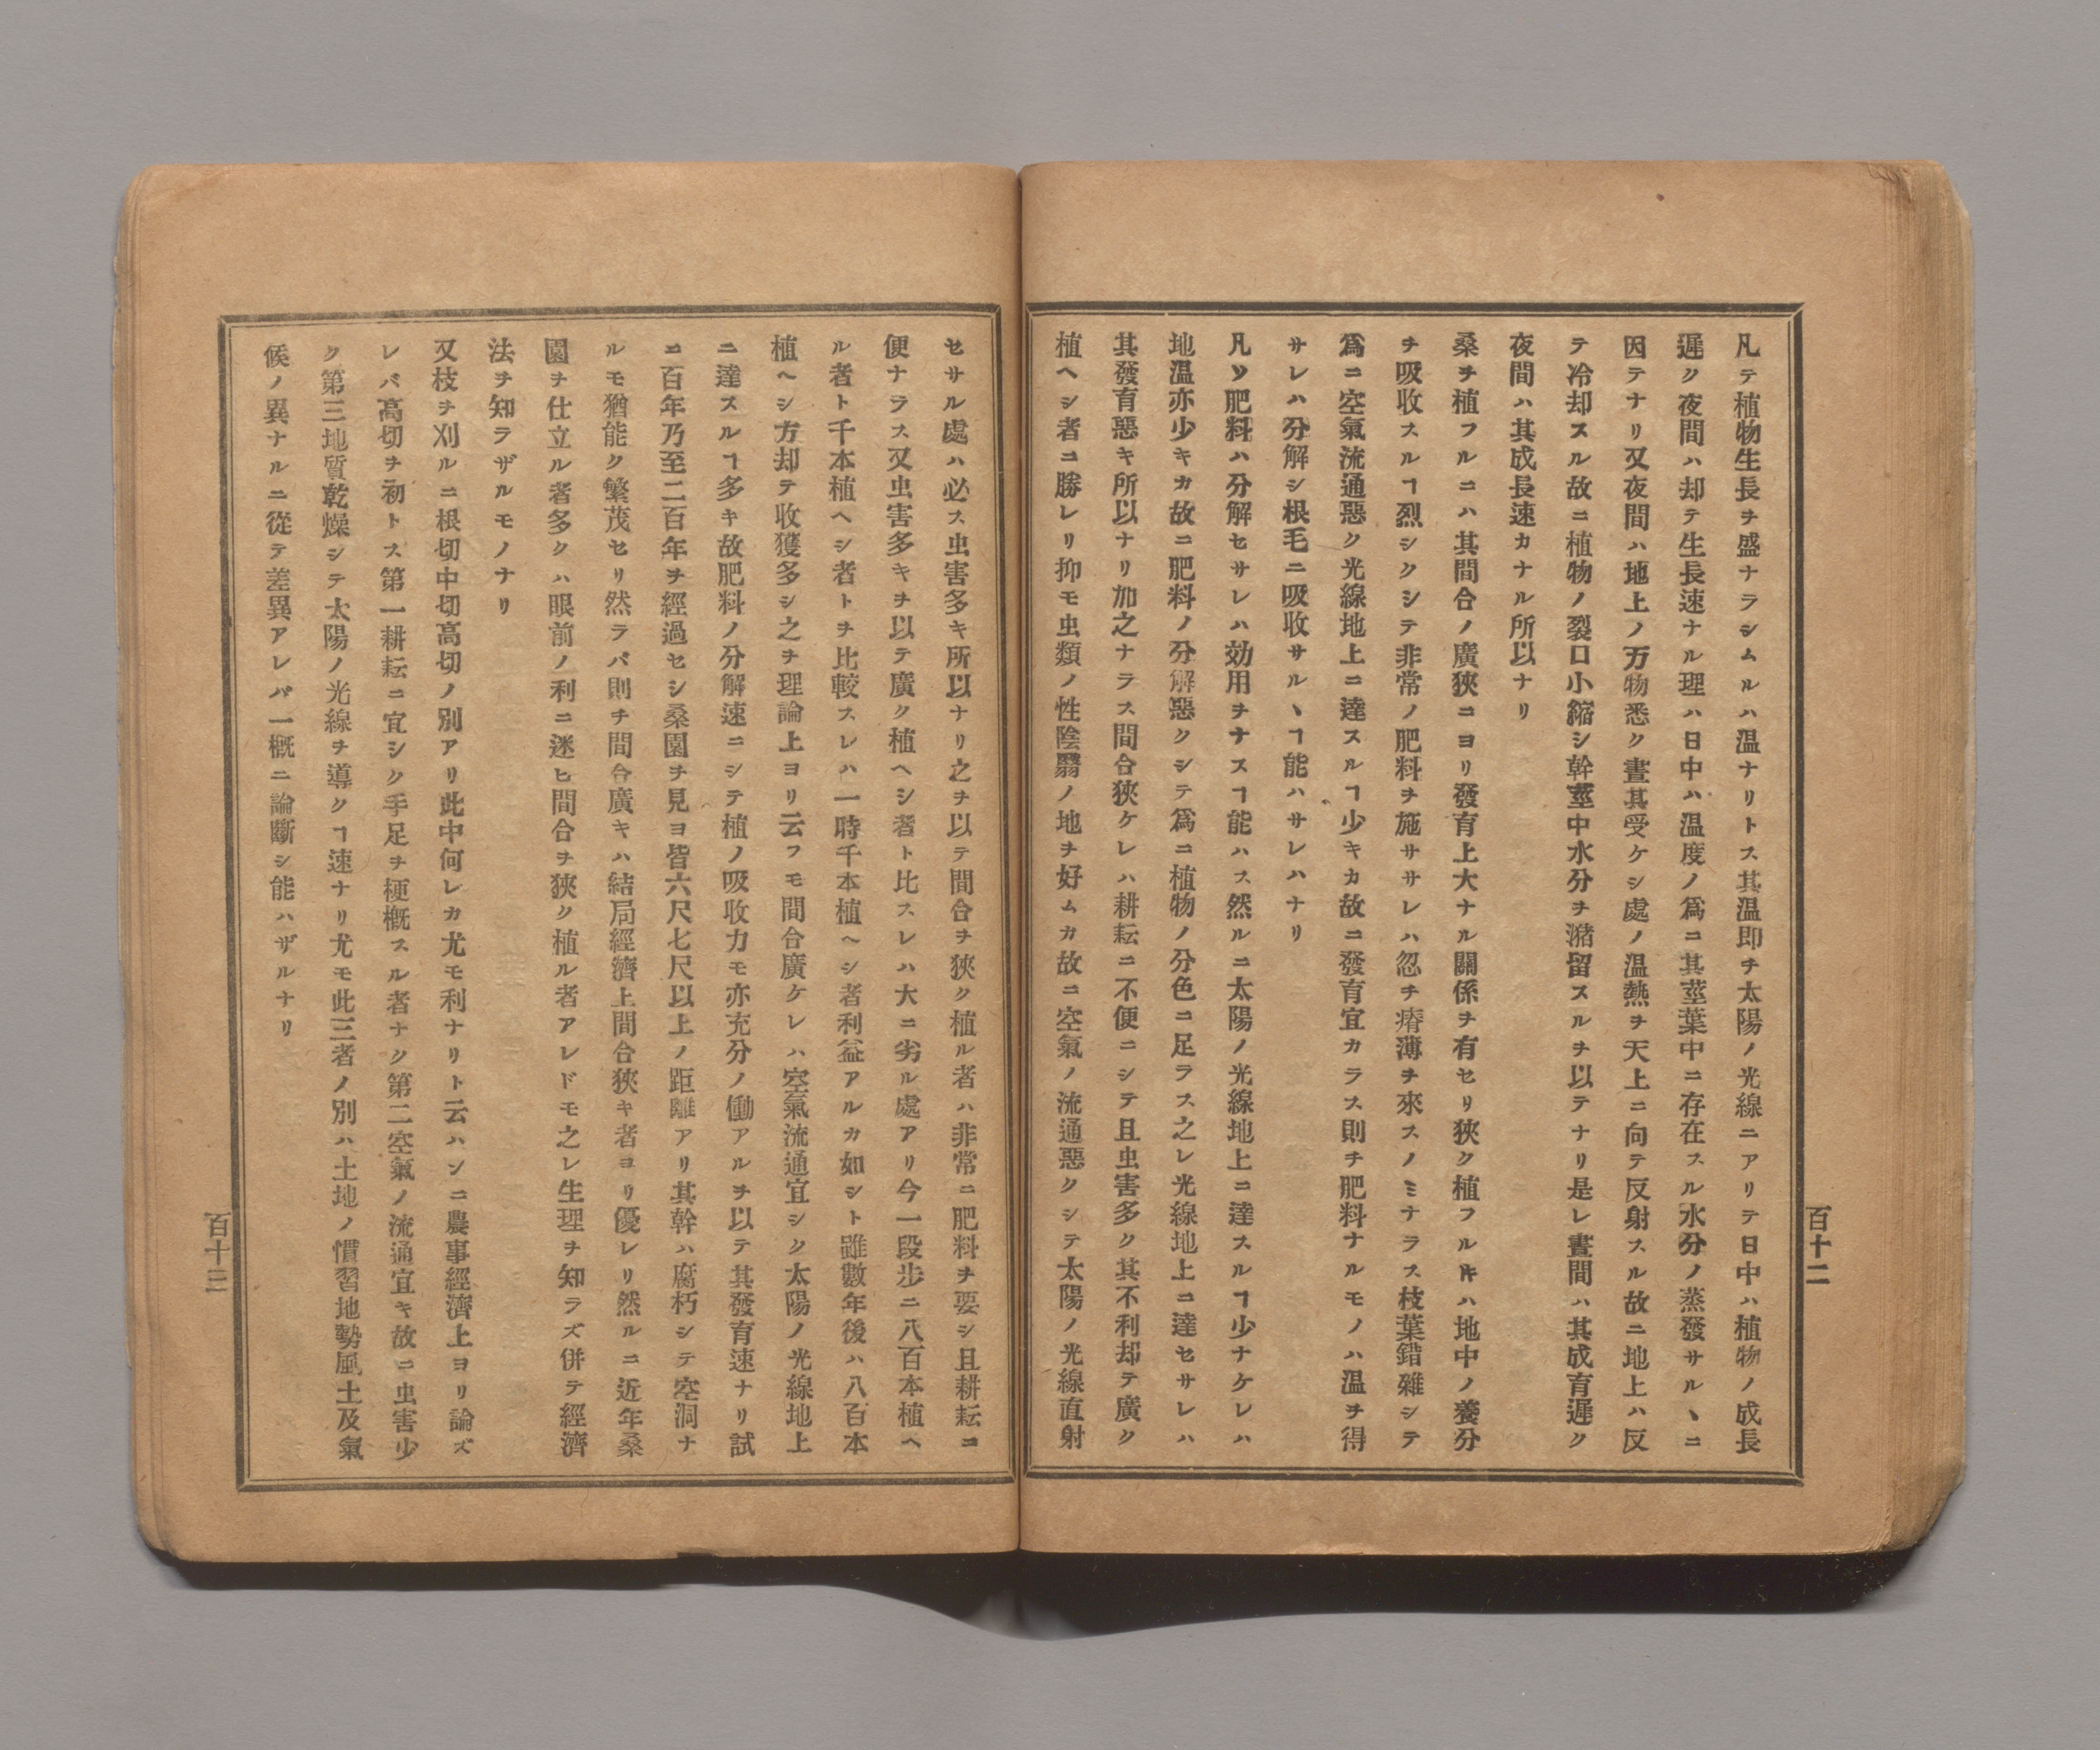 凡テ植物生長ヲ盛ナラシムルハ温ナリトス其温即チ太陽ノ光線ニアリテ日中ハ植物ノ成長
遲ク夜間ハ却テ生長速ナル理ハ日中ハ温度ノ爲ニ其莖葉中ニ存在スル水分ノ蒸發サルヽニ
因テナリ又夜間ハ地上ノ万物悉ク晝其受ケシ處ノ温熱ヲ天上ニ向テ反射スル故ニ地上ハ反
テ冷却スル故ニ植物ノ裂口小縮シ幹莖中水分ヲ瀦留スルヲ以テナリ是レ晝間ハ其成育遲ク
夜間ハ其成長速カナル所以ナリ
桑ヲ植フルニハ其間合ノ廣狹ニヨリ發育上大ナル關係ヲ有セリ狹ク植フルキハ地中ノ養分
ヲ吸收スルヿ烈シクシテ非常ノ肥料ヲ施ササレハ忽チ瘠薄ヲ來スノミナラス枝葉錯雜シテ
爲ニ空氣流通惡ク光線地上ニ達スルヿ少キカ故ニ發育宜カラス則チ肥料ナルモノハ温ヲ得
サレハ分解シ根毛ニ吸收サルヽヿ能ハサレハナリ
凡ソ肥料ハ分解セサレハ効用ヲナスヿ能ハス然ルニ太陽ノ光線地上ニ達スルヿ少ナケレハ
地温亦少キカ故ニ肥料ノ分解惡クシテ爲ニ植物ノ分色ニ足ラス之レ光線地上ニ達セサレハ
其發育惡キ所以ナリ加之ナラス間合狹ケレハ耕耘ニ不便ニシテ且虫害多ク其不利却テ廣ク
植ヘシ者ニ勝レリ抑モ虫類ノ性陰翳ノ地ヲ好ムカ故ニ空氣ノ流通惡クシテ太陽ノ光線直射
百十二
セサル處ハ必ス虫害多キ所以ナリ之ヲ以テ間合ヲ狹ク植ル者ハ非常ニ肥料ヲ要シ且耕耘ニ
便ナラス又虫害多キヲ以テ廣ク植ヘシ者ト比スレハ大ニ劣ル處アリ今一段步ニ八百本植ヘ
ル者ト千本植ヘシ者トヲ比較スレハ一時千本植ヘシ者利益アルカ如シト雖數年後ハ八百本
植ヘシ方却テ收獲多シ之ヲ理論上ヨリ云フモ間合廣ケレハ空氣流通宜シク太陽ノ光線地上
ニ達スルヿ多キ故肥料ノ分解速ニシテ植ノ吸收力モ亦充分ノ働アルヲ以テ其發育速ナリ試
ニ百年乃至二百年ヲ經過セシ桑園ヲ見ヨ皆六尺七尺以上ノ距離アリ其幹ハ腐朽シテ空洞ナ
ルモ猶能ク繁茂セリ然ラバ則チ間合廣キハ結局經濟上間合狹キ者ヨリ優レリ然ルニ近年桑
園ヲ仕立ル者多クハ眼前ノ利ニ迷ヒ間合ヲ狹ク植ル者アレドモ之レ生理ヲ知ラズ併テ經濟
法ヲ知ラザルモノナリ
又枝ヲ刈ルニ根切中切高切ノ別アリ此中何レカ尤モ利ナリト云ハンニ農事經濟上ヨリ論ズ
レバ高切ヲ初トス第一耕耘ニ宜シク手足ヲ梗概スル者ナク第二空氣ノ流通宜キ故ニ虫害少
ク第三地質乾燥シテ太陽ノ光線ヲ導クヿ速ナリ尤モ此三者ノ別ハ土地ノ慣習地勢風土及氣
候ノ異ナルニ從テ差異アレバ一概ニ論斷シ能ハザルナリ
百十三